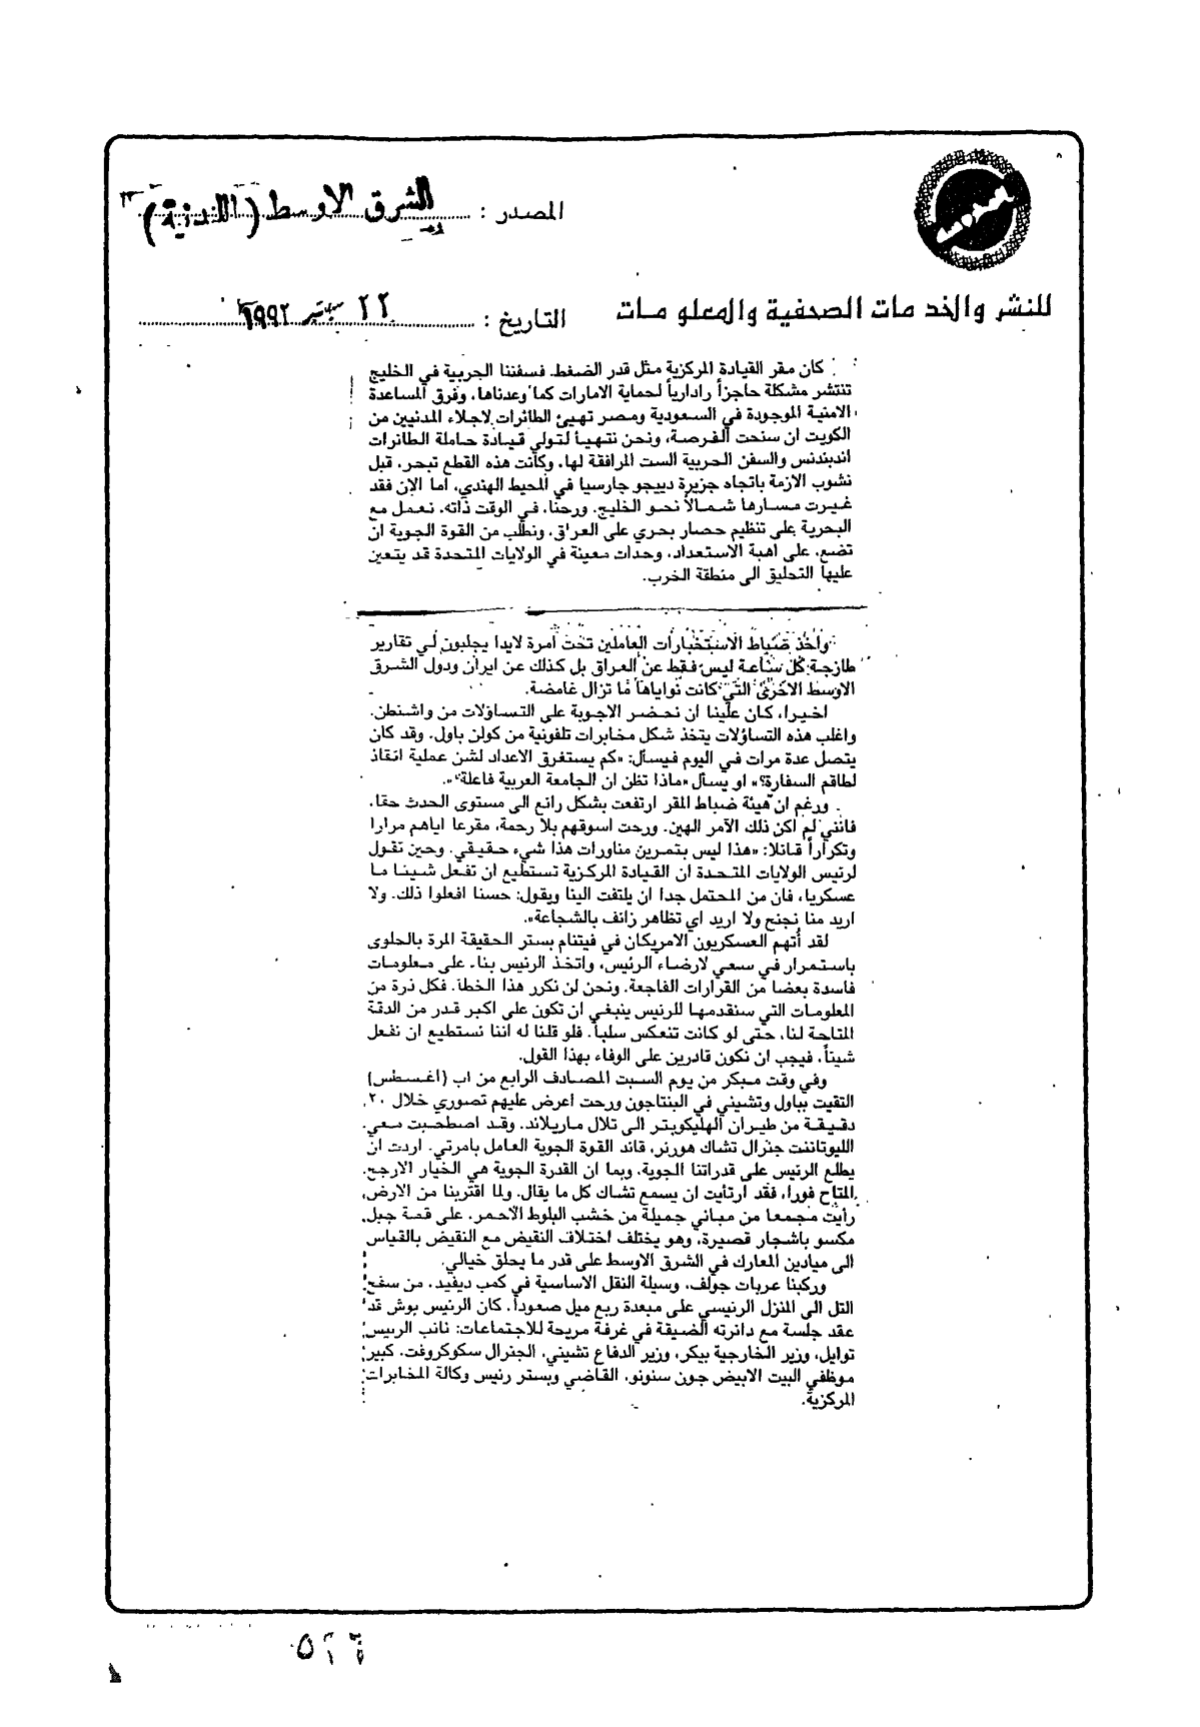 المصدر : الشرق الاوسط (اللندنية)
للنشر والخدمات الصحفية والمعلومات
التاريخ : ٢٢ سبتمبر ١٩٩٢
كان مقر القيادة المركزية مثل قدر الضغط. فسفننا الحربية في الخليج
تنتشر مشكلة حاجزاً رادارياً لحماية الامارات كما وعدناها، وفرق المساعدة
الامنية الموجودة في السعودية ومصر تهيئ الطائرات لاجلاء المدنيين من
الكويت ان سنحت الفرصة، ونحن نتهيأ لتولي قيادة حاملة الطائرات
اندبندنس والسفن الحربية الست المرافقة لها. وكانت هذه القطع تبحر، قبل
نشوب الازمة باتجاه جزيرة دييجو جارسيا في المحيط الهندي، اما الان فقد
غيرت مسارها شمالاً نحو الخليج. ورحنا، في الوقت ذاته، نعمل مع
البحرية على تنظيم حصار بحري على العراق، ونطلب من القوة الجوية ان
تضع، على اهبة الاستعداد، وحدات معينة في الولايات المتحدة قد يتعين
عليها التحليق الى منطقة الحرب.
وأخذ ضباط الاستخبارات العاملين تحت امرة لايدا يجلبون لي تقارير
طازجة كل ساعة ليس فقط عن العراق بل كذلك عن ايران ودول الشرق
الاوسط الاخرى التي كانت نواياها ما تزال غامضة.
اخيرا، كان علينا ان نحضر الاجوبة على التساؤلات من واشنطن.
واغلب هذه التساؤلات يتخذ شكل مخابرات تلفونية من كولن باول. وقد كان
يتصل عدة مرات في اليوم فيسأل: «كم يستغرق الاعداد لشن عملية انقاذ
لطاقم السفارة؟» او يسأل «ماذا تظن ان الجامعة العربية فاعلة؟».
ورغم ان هيئة ضباط المقر ارتفعت بشكل رائع الى مستوى الحدث حقا،
فانني لم اكن ذلك الآمر الهين. ورحت اسوقهم بلا رحمة، مقرعا اياهم مرارا
وتكراراً قائلا: «هذا ليس بتمرين مناورات هذا شيء حقيقي. وحين تقول
لرئيس الولايات المتحدة ان القيادة المركزية تستطيع ان تفعل شيئا ما
عسكريا، فان من المحتمل جدا ان يلتفت الينا ويقول: حسنا افعلوا ذلك. ولا
اريد منا نجنح ولا اريد اي تظاهر زائف بالشجاعة».
لقد أتهم العسكريون الامريكان في فيتنام بستر الحقيقة المرة بالحلوى
باستمرار في سعي لارضاء الرئيس، واتخذ الرئيس بناء على معلومات
فاسدة بعضا من القرارات الفاجعة. ونحن لن نكرر هذا الخطأ. فكل ذرة من
المعلومات التي سنقدمها للرئيس ينبغي ان تكون على اكبر قدر من الدقة
المتاحة لنا، حتى لو كانت تنعكس سلباً. فلو قلنا له اننا نستطيع ان نفعل
شيئاً، فيجب ان نكون قادرين على الوفاء بهذا القول.
وفي وقت مبكر من يوم السبت المصادف الرابع من اب (اغسطس)
التقيت بباول وتشيني في البنتاجون ورحت اعرض عليهم تصوري خلال ٢٠
دقيقة من طيران الهليكوبتر الى تلال ماريلاند. وقد اصطحبت معي
الليوتاننت جنرال تشاك هورنر، قائد القوة الجوية العامل بامرتي. اردت ان
يطلع الرئيس على قدراتنا الجوية، وبما ان القدرة الجوية هي الخيار الارجح
المتاح فورا، فقد ارتأيت ان يسمع تشاك كل ما يقال. ولما اقتربنا من الارض،
رأيت مجمعا من مباني جميلة من خشب البلوط الاحمر، على قمة جبل
مكسو باشجار قصيرة، وهو يختلف اختلاف النقيض مع النقيض بالقياس
الى ميادين المعارك في الشرق الاوسط على قدر ما يحلق خيالي.
وركبنا عربات جولف، وسيلة النقل الاساسية في كمب ديفيد، من سفح
التل الى المنزل الرئيسي على مبعدة ربع ميل صعوداً. كان الرئيس بوش قد
عقد جلسة مع دائرته الضيقة في غرفة مريحة للاجتماعات: نائب الرئيس
توايل، وزير الخارجية بيكر، وزير الدفاع تشيني، الجنرال سكوكروفت، كبير
موظفي البيت الابيض جون سنونو، القاضي وبستر رئيس وكالة المخابرات
المركزية.